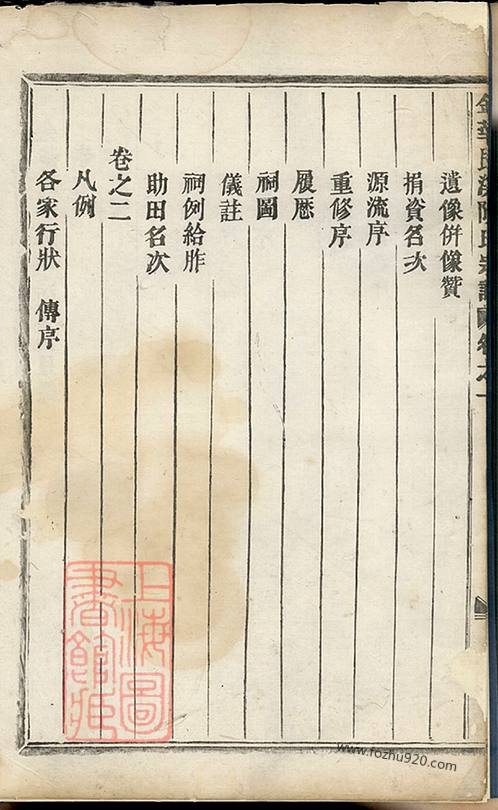 遺像併像贊
捐資名次
源流序
重修序
履歷
祠圖
儀註
祠例給胙
助田名次
卷之二
凡例
各家行狀　傳序
上海圖書館藏
www.fozhu920.com